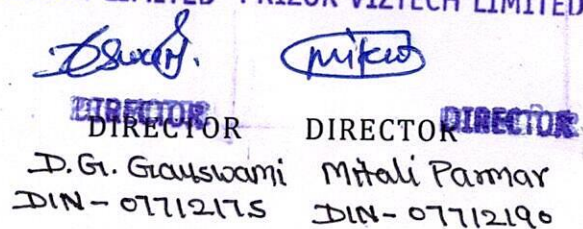 LIMITED PRIZOR VIZTECH LIMITED
DIRECTOR DIRECTOR
DIRECTOR DIRECTOR
D.G. Gauswami Mitali Parmar
DIN - 07712175 DIN - 07712190